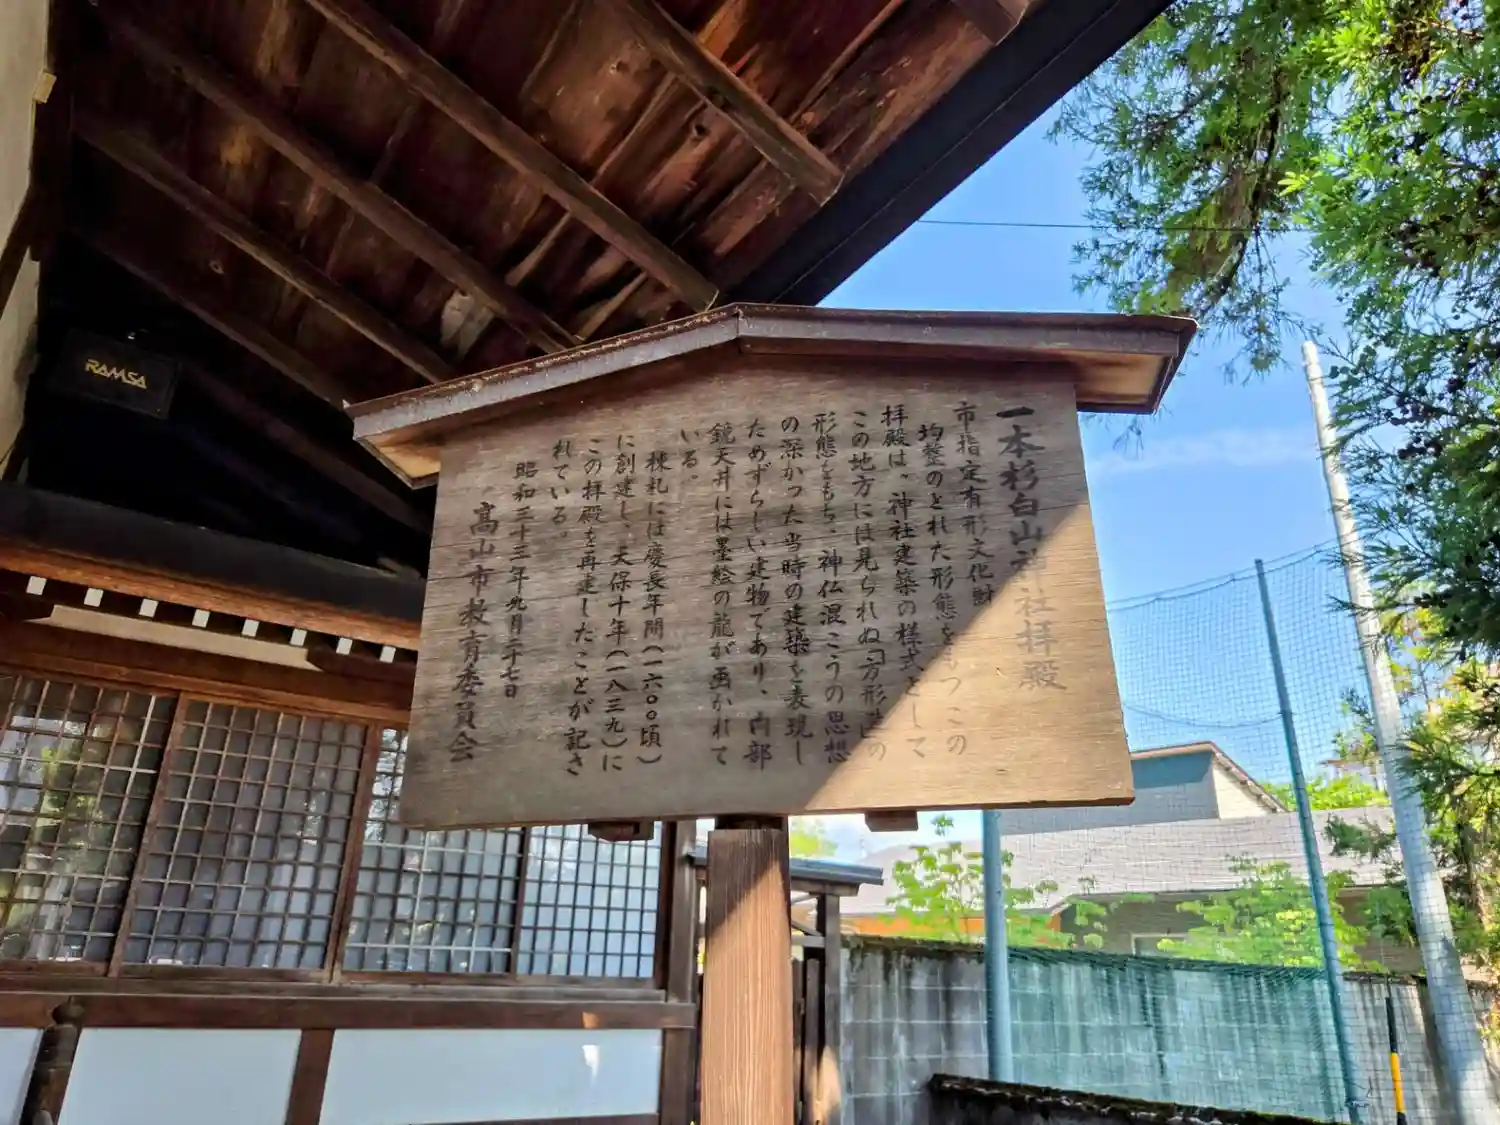 一本杉白山神社拝殿
市指定有形文化財
均整のとれた形態をもつこの
拝殿は、神社建築の様式として
この地方には見られぬ「方形造」の
形態をもち、神仏混こうの思想
の深かった当時の建築を表現し
ためずらしい建物であり、内部
鏡天井には墨絵の龍が画かれて
いる。
棟札には慶長年間(一六〇〇頃)
に創建し、天保十年(一八三九)に
この拝殿を再建したことが記さ
れている。
昭和三十三年九月二十七日
高山市教育委員会
RAMSA